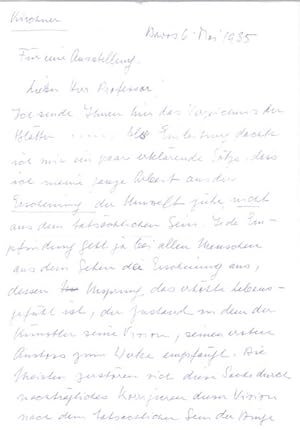 Kirchner
Davos 6. Mai 1935
Für eine Ausstellung.
Lieber Herr Professor!
Ich sende Ihnen hier das Verzeichnis der
Blätter als Einleitung dachte
ich mir ein paar erklärende Sätze, dass
ich meine ganze Arbeit aus der
Erscheinung der Umwelt ziehe nicht
aus dem tatsächlichen Sein. Jede Em-
pfindung geht ja bei allen Menschen
aus dem Sehen der Erscheinung aus,
dessen Ursprung das erhöhte Lebens-
gefühl ist, der Zustand in dem der
Künstler seine Vision, seinen ersten
Anstoss zum Werke empfängt. Die
Meisten zerstören sich diese durch
nachträgliches Korrigieren dieser Vision
nach dem tatsächlichen Sein der Dinge